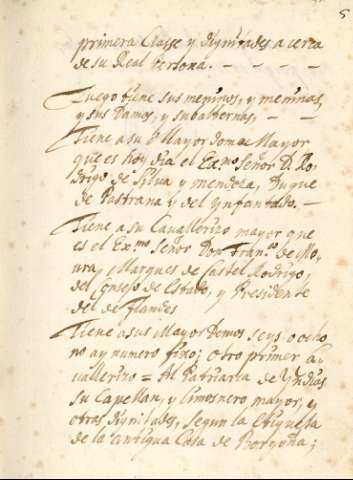 5
primera Classe y dignidades a cerca
de su Real Persona. - - - -
Luego tiene sus meninos, y meninas,
y sus Damas, y subalternas, - -
Tiene a su Mayordomo Mayor
que es hoy dia el Exmo Señor D. Ro,
drigo de Silva y mendoza, Duque
de Pastrana y del Ynfantado. -
Tiene a su Cavallerizo mayor que
es el Exmo Señor Don Franco de Mo,
ura, Marques de Castel Rodrigo,
del Consejo de Estado, y Presidente
del de Flandes
Tiene a sus Mayordomos seys o ocho
no ay numero fixo; otro primer ca,
vallerizo = Al Patriarca de Yndias
su Capellan, y limosnero mayor, y
otras dignidades, segun la Etiqueta
de la antigua Casa de Borgoña;